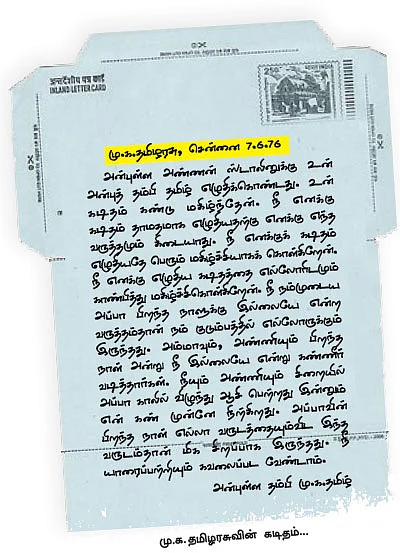 अन्तर्देशीय पत्र कार्ड
INLAND LETTER CARD
भारत INDIA
250
மு.க.தமிழரசு, சென்னை 7.6.76
அன்புள்ள அண்ணன் ஸ்டாலினுக்கு உன்
அன்புத் தம்பி தமிழ் எழுதிக்கொண்டது. உன்
கடிதம் கண்டு மகிழ்ந்தேன். நீ எனக்கு
கடிதம் தாமதமாக எழுதியதற்கு எனக்கு எந்த
வருத்தமும் கிடையாது. நீ எனக்குக் கடிதம்
எழுதியதே பெரும் மகிழ்ச்சியாகக் கொள்கிறேன்.
நீ எனக்கு எழுதிய கடிதத்தை எல்லோரிடமும்
காண்பித்து மகிழ்ச்சிகொள்கிறேன். நீ நம்முடைய
அப்பா பிறந்த நாளுக்கு இல்லையே என்ற
வருத்தம்தான் நம் குடும்பத்தில் எல்லோருக்கும்
இருந்தது. அம்மாவும், அண்ணியும் பிறந்த
நாள் அன்று நீ இல்லையே என்று கண்ணீர்
வடித்தார்கள். நீயும் அண்ணியும் சிறையில்
அப்பா காலில் விழுந்து ஆசி பெற்றது இன்னும்
என் கண் முன்னே நிற்கிறது. அப்பாவின்
பிறந்த நாள் எல்லா வருடத்தையும்விட இந்த
வருடம்தான் மிக சிறப்பாக இருந்தது. நீ
யாரைப்பற்றியும் கவலைப்பட வேண்டாம்.
அன்புள்ள தம்பி மு.க.தமிழ்
மு.க.தமிழரசுவின் கடிதம்...